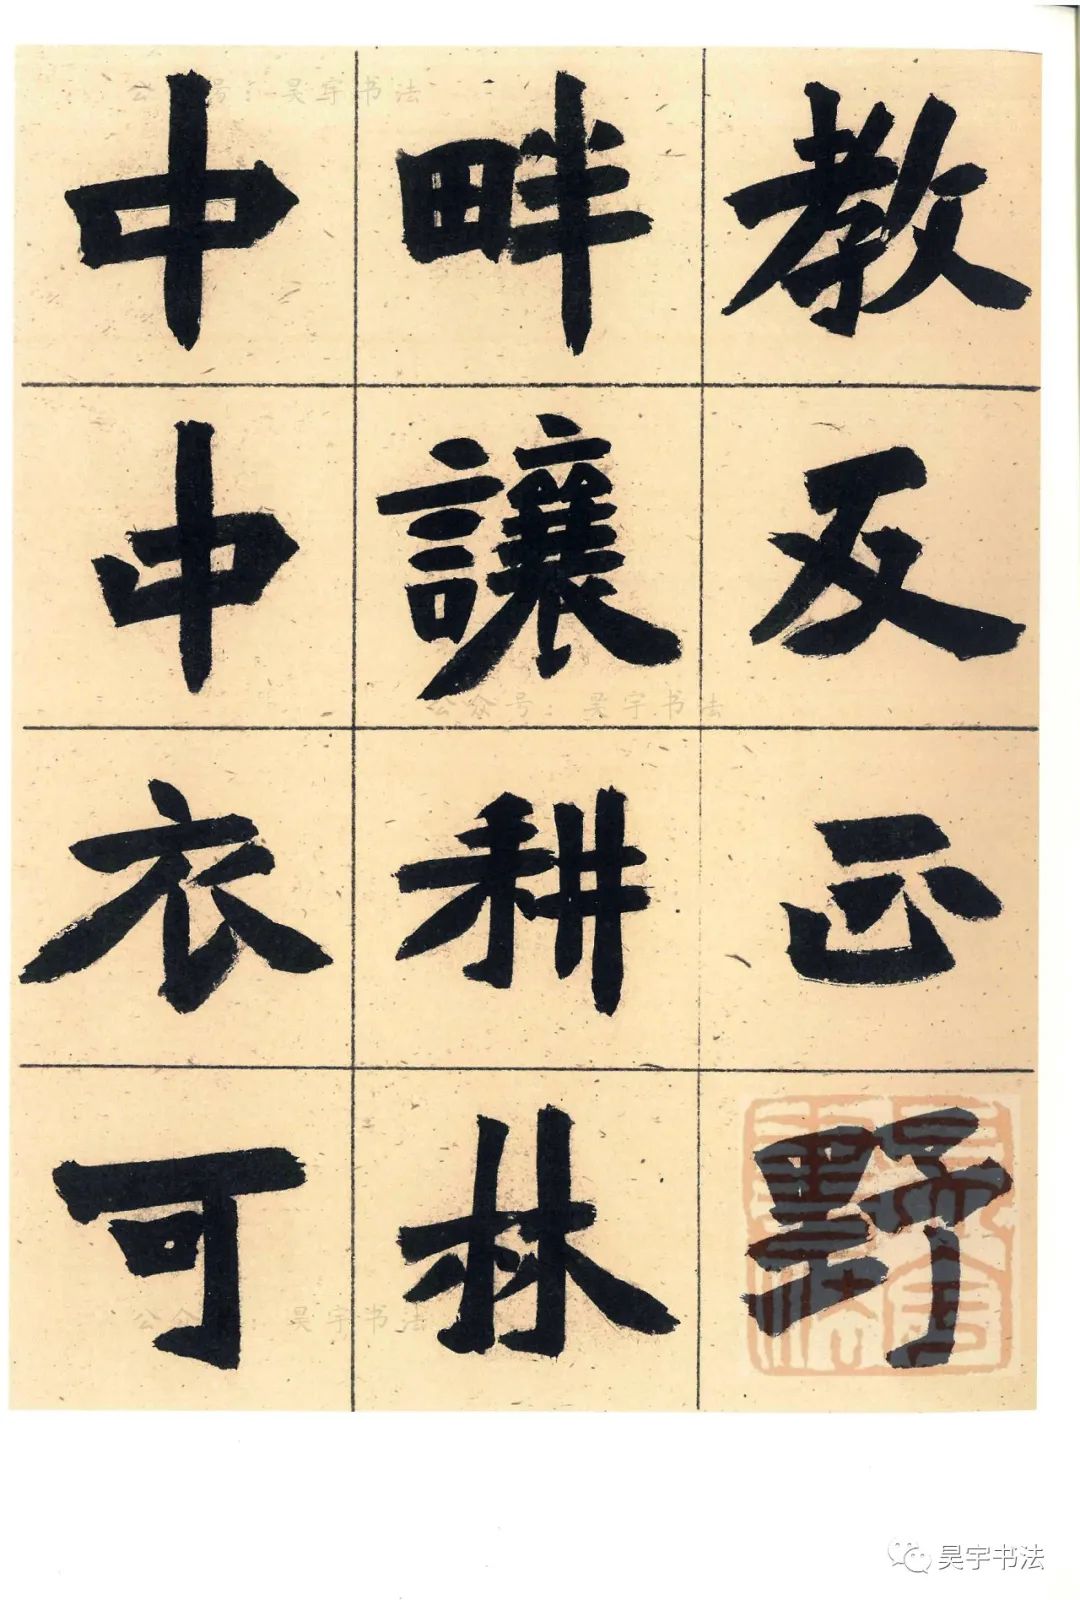 教反正野
畔讓耕林
中中衣可
公众号：昊宇书法
公众号：昊宇书法
公众号：昊宇书法
昊宇书法